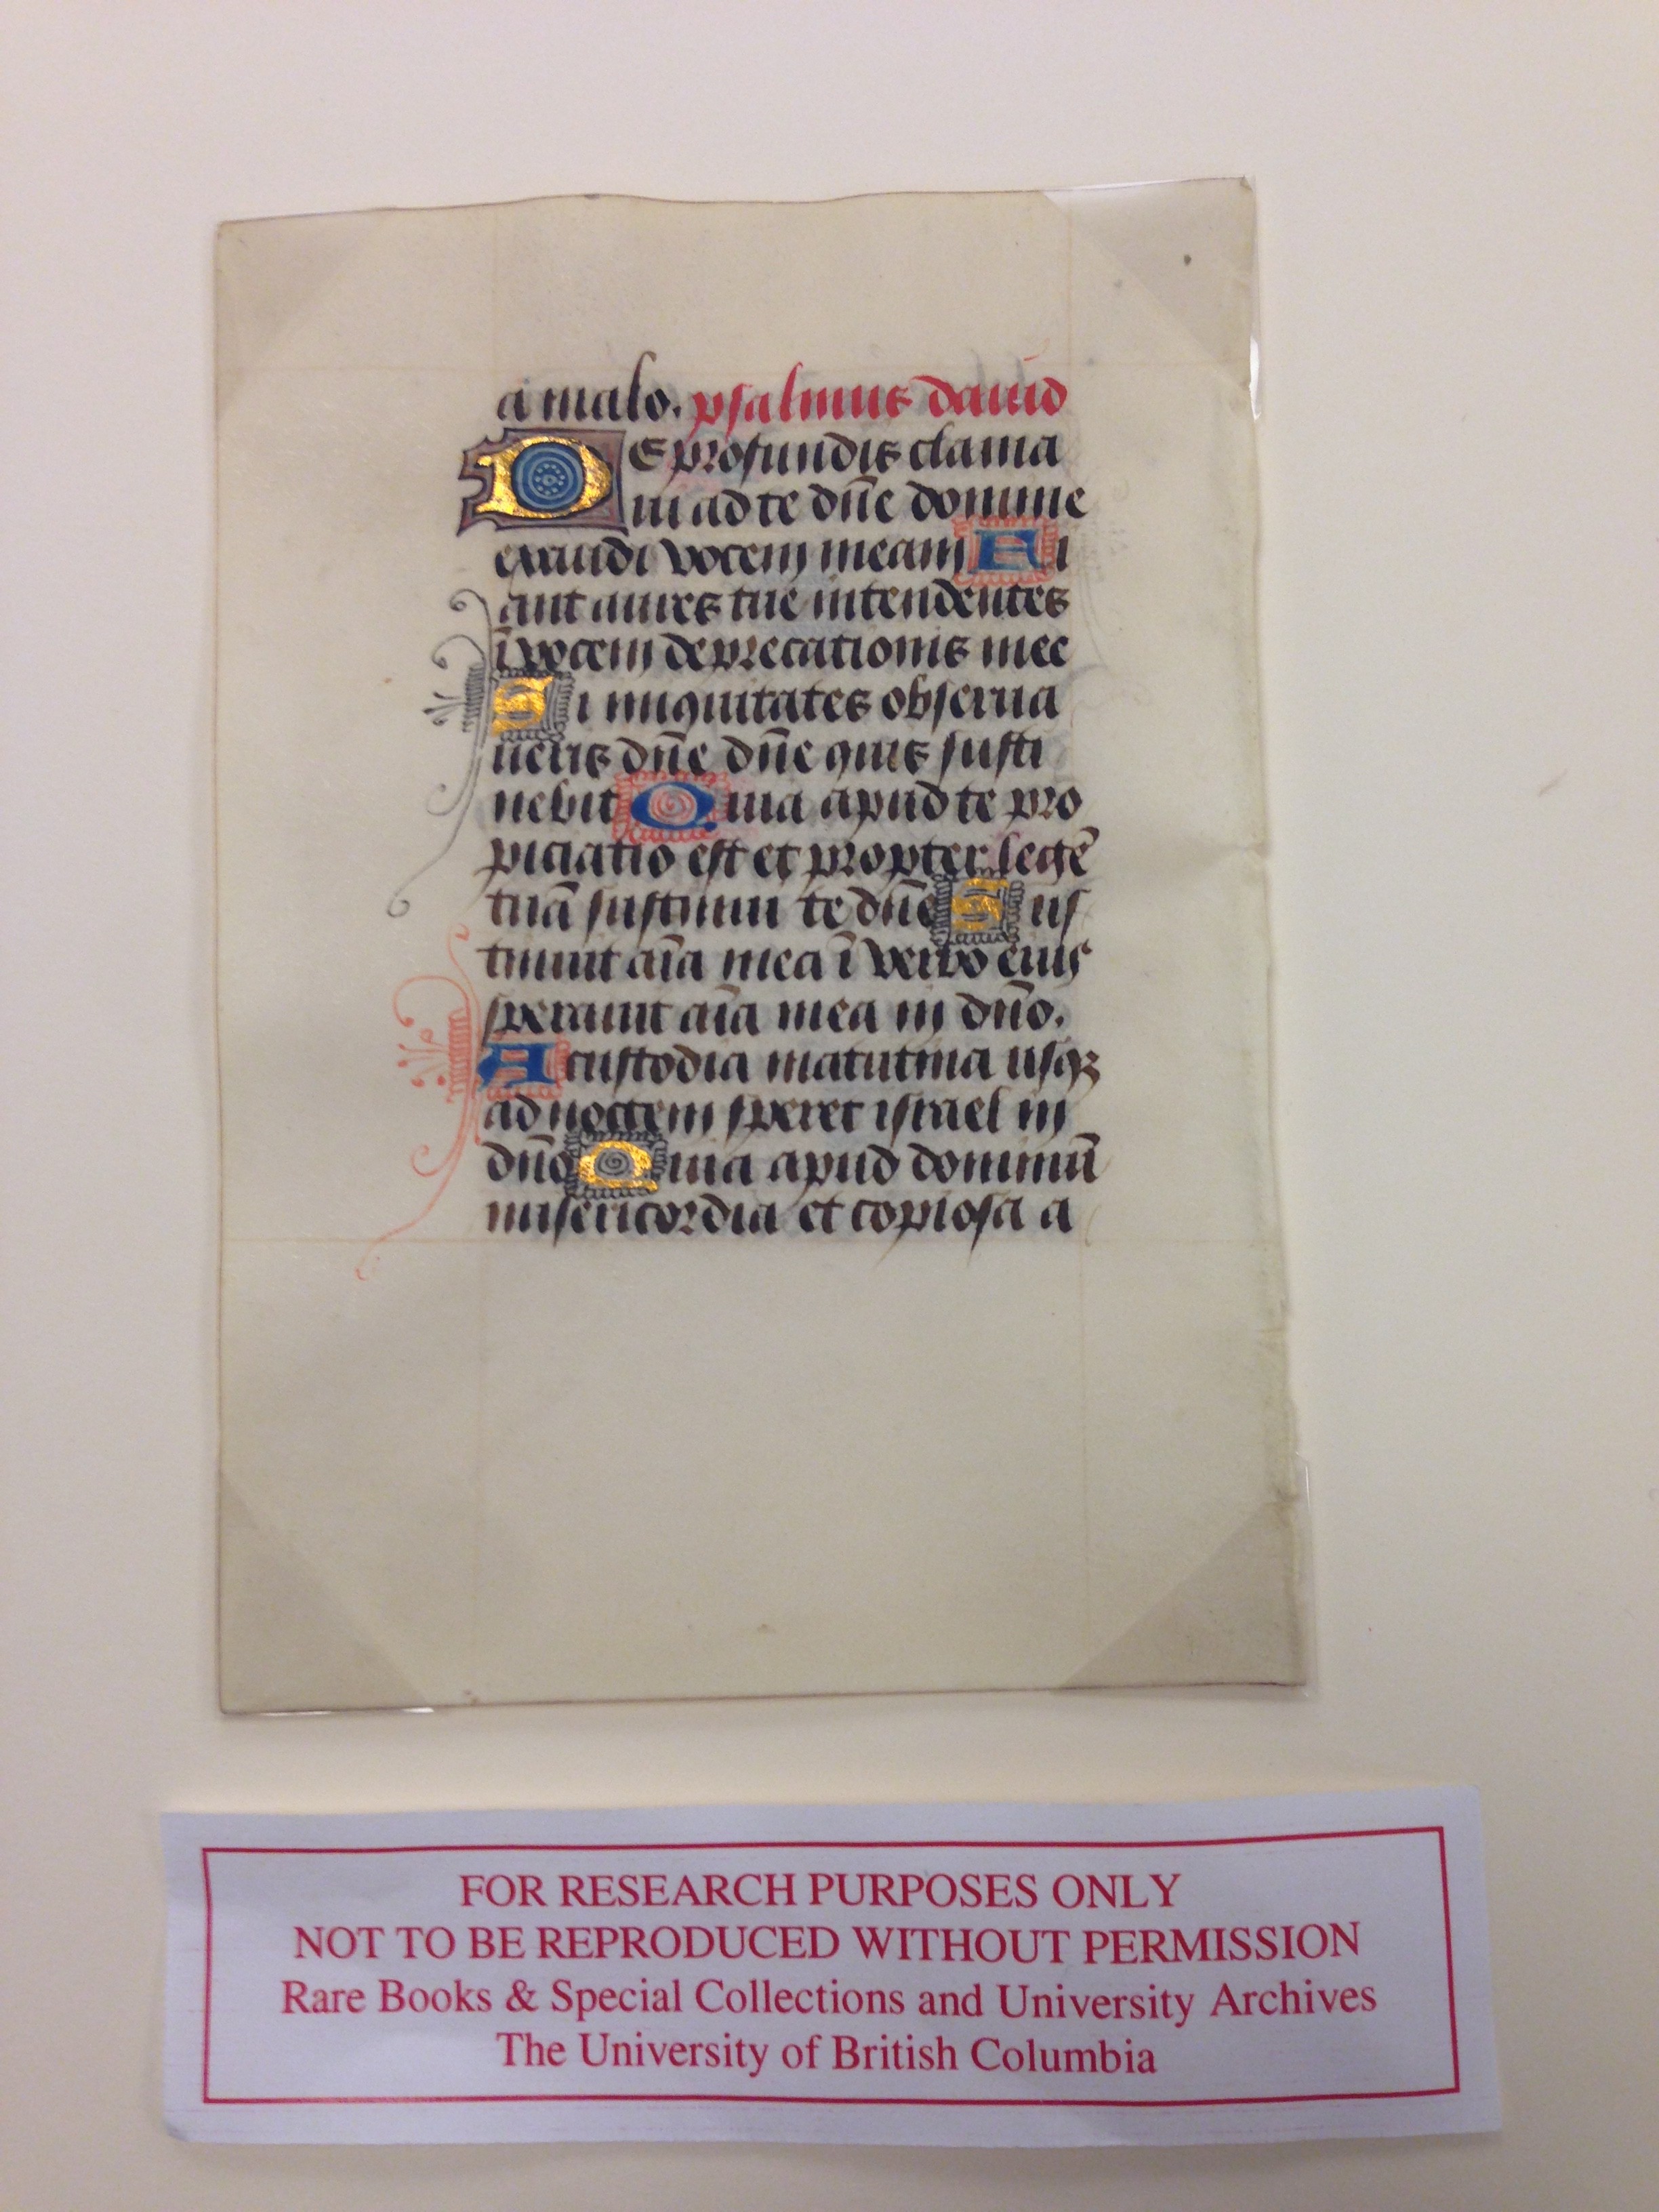 a malo. psalmus dauid
De profundis clama
ui ad te dn̄e domine
exaudi vocem meam Fi
ant aures tue intendentes
ī vocem deprecationis mee
Si iniquitates obserua
ueris dn̄e dn̄e quis susti
nebit Quia apud te pro
piciatio est et propter legē
tuā sustinui te dn̄e Sus
tinuit aīa mea ī verbo eius
sperauit aīa mea in dn̄o.
A custodia matutina usqꝫ
ad noctem speret israel in
dn̄o Quia apud dominū
misericordia et copiosa a
FOR RESEARCH PURPOSES ONLY
NOT TO BE REPRODUCED WITHOUT PERMISSION
Rare Books & Special Collections and University Archives
The University of British Columbia